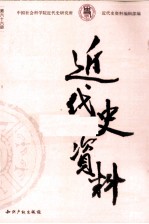 中国社会科学院近代史研究所
近代史资料编辑部编
近代史資料
知识产权出版社